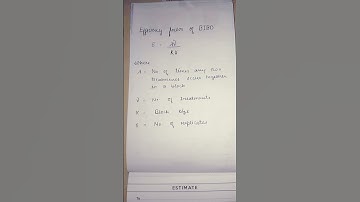 Efficiency factor of BIBD
E =
Where
No of times any two
treatments occur together
in a block
No of treatments
Block size
No of replicates
ESTIMATE